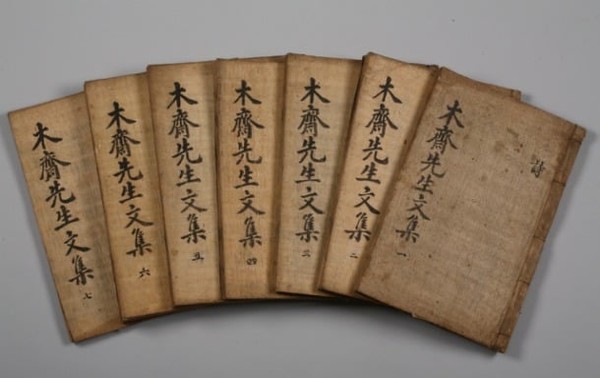 詩
木齋先生文集 一
木齋先生文集 二
木齋先生文集 三
木齋先生文集 四
木齋先生文集 五
木齋先生文集 六
木齋先生文集 七